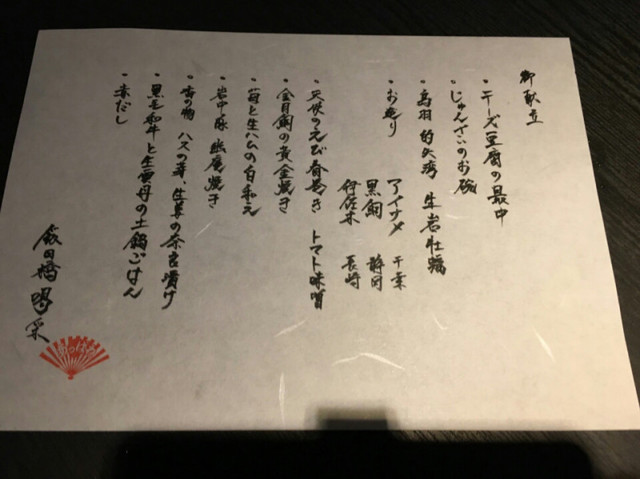 御献立
・チーズ豆腐の最中
・じゅんさいのお椀
・鳥羽 的矢湾 生岩牡蠣
・お造り アイナメ 千葉
黒鯛 静岡
伊佐木 長崎
・天使のえび春巻き トマト味噌
・金目鯛の黄金焼き
・苺と生ハムの白和え
・岩中豚 幽庵焼き
・香の物 ハスの芽、生姜の奈良漬け
・黒毛和牛と生雲丹の土鍋ごはん
・赤だし
飯田橋